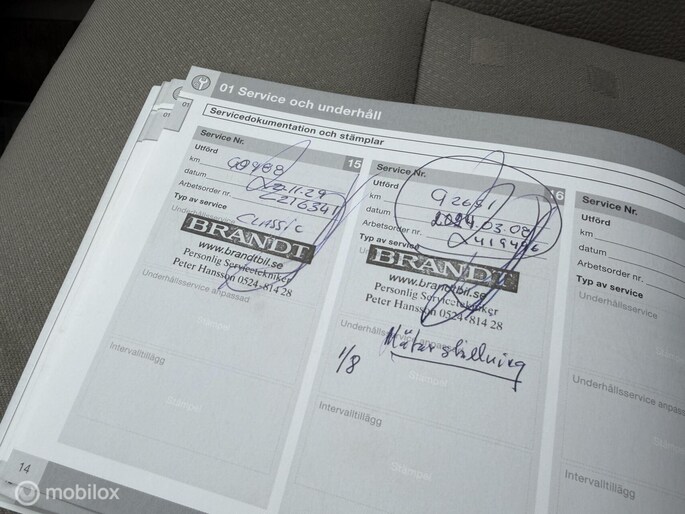 01 Service och underhåll
Servicedokumentation och stämplar
Service Nr. 15
Utförd
km
datum
Arbetsorder nr.
Typ av service
CLASSIC
BRANDT
www.brandtbil.se
Personlig Servicetekniker
Peter Hansson 0524-814 28
Underhållsservice anpassad
Stämpel
Intervalltillägg
Stämpel
14
Service Nr. 16
Utförd
km
datum 2024.03.08
Arbetsorder nr.
Typ av service
BRANDT
www.brandtbil.se
Personlig Servicetekniker
Peter Hansson 0524-814 28
Underhållsservice anpassad
1/8 Mätarställning
Intervalltillägg
Stämpel
Service Nr.
Utförd
km
datum
Arbetsorder nr.
Typ av service
Underhållsservice
Underhållsservice anpassad
Intervalltillägg
mobilox